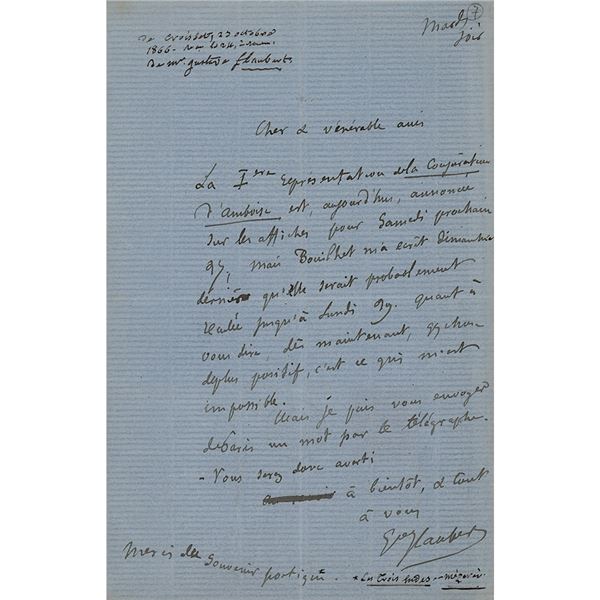 de Croisset, 23 octobre
1866
de Mr. Gustave Flaubert
Mardi 7
soir
Cher & vénérable ami
La Iere représentation de La Conjuration
d'Amboise est, aujourd'hui, annoncée
sur les affiches pour Samedi prochain
27, mais Bouilhet m'a écrit dimanche
dernier qu'elle serait probablement
reculée jusqu'à Lundi 29. quant à
vous dire, dès maintenant, qque chose
de plus positif, c'est ce qui m'est
impossible.
Mais je puis vous envoyer
de Paris un mot par le télégraphe.
- Vous serez donc averti
à bientôt, & tout
à vous
Gve Flaubert
Merci du souvenir poétique. * Les Trois Indes